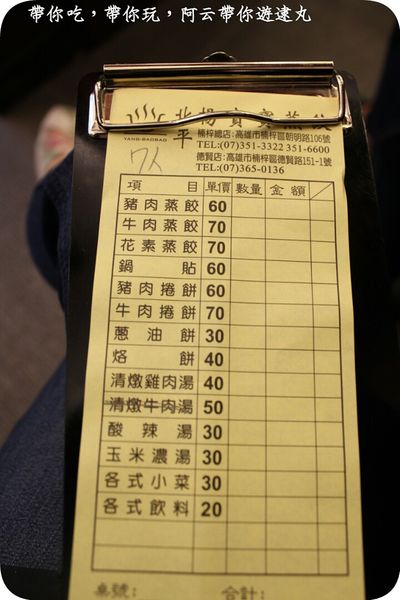 帶你吃，帶你玩，阿云帶你遊逮丸
YANG-BAOBAO
平
楠梓總店:高雄市楠梓區朝明路106號
TEL:(07)351-3322 351-6600
德賢店:高雄市楠梓區德賢路151-1號
TEL:(07)365-0136
7人
項目 單價 數量 金額
豬肉蒸餃 60
牛肉蒸餃 70
花素蒸餃 70
鍋貼 60
豬肉捲餅 60
牛肉捲餅 70
蔥油餅 30
烙餅 40
清燉雞肉湯 40
清燉牛肉湯 50
酸辣湯 30
玉米濃湯 30
各式小菜 30
各式飲料 20
桌號: 合計: